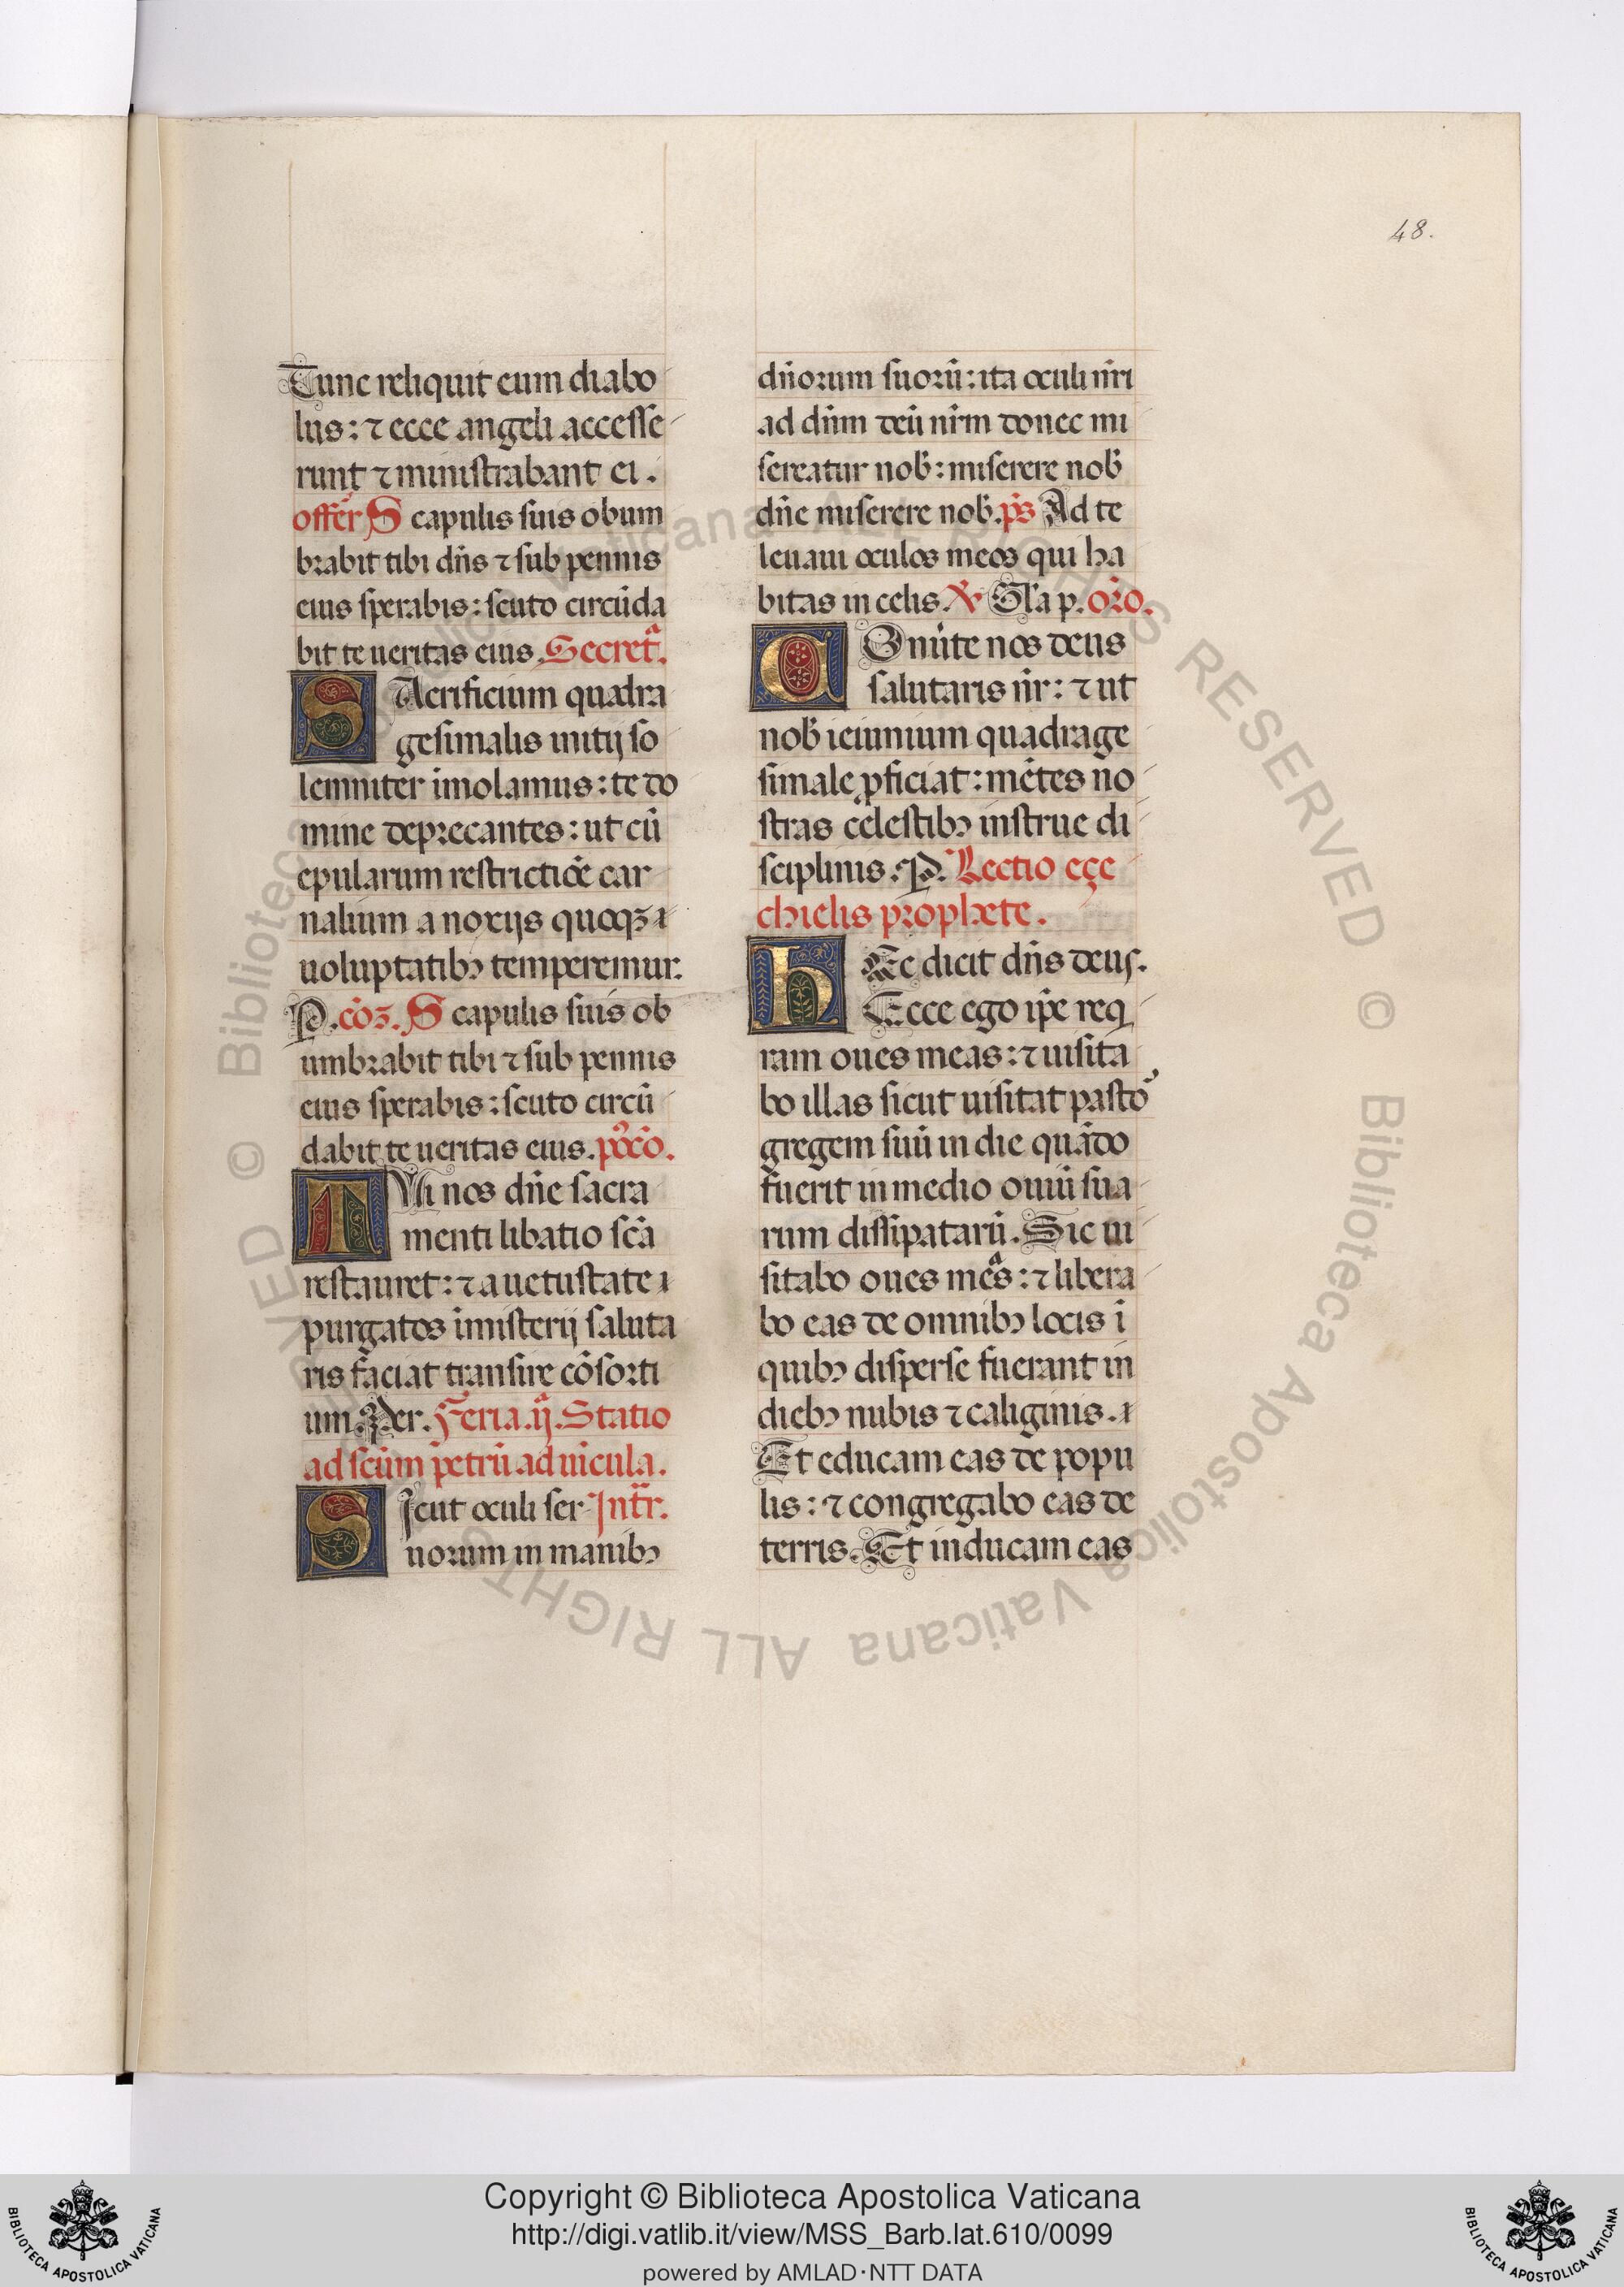 48.
Tunc reliquit eum diabo
lus: ⁊ ecce angeli accesse
runt ⁊ ministrabant ei.
offer̄ Scapulis suis obum
brabit tibi dn̄s ⁊ sub pennis
eius sperabis: scuto circūda
bit te ueritas eius. Secretᵃ.
SAcrificium quadra
gesimalis initij so
lemniter imolamus: te do
mine deprecantes: ut cū
epularum restrictiōe car
nalium a noxijs quoqꝫ
uoluptatibꝰ temperemur.
P. cōꝫ. Scapulis suis ob
umbrabit tibi ⁊ sub pennis
eius sperabis: scuto circū
dabit te ueritas eius. pꝰcō.
TUi nos dn̄e sacra
menti libatio scā
restauret: ⁊ a uetustate
purgatos ī misterij saluta
ris faciat transire cōsorti
um. Per. Feria .ijᵃ. Statio
ad scūm petrū ad uīcula.
SIcut oculi ser Intᵃr.
uorum in manibꝰ
dn̄orum suorū: ita oculi nr̄i
ad dn̄m deū nr̄m donec mi
sereatur nob̄: miserere nob̄
dn̄e miserere nob̄. pˢ Ad te
leuaui oculos meos qui ha
bitas in celis. ℣ Gl̄a p. orō.
COnūte nos deus
salutaris nr̄: ⁊ ut
nob̄ ieiunium quadrage
simale ꝓficiat: mētes no
stras celestibꝰ instrue di
sciplinis. P. Lectio eçe
chielis prophete.
hEc dicit dn̄s deus.
Ecce ego ip̄e req
ram oues meas: ⁊ uisita
bo illas sicut uisitat pastoʼ
gregem suū in die quādo
fuerit in medio ouiū sua
rum dissipatarū. Sic ui
sitabo oues meᵃs: ⁊ libera
bo eas de omnibꝰ locis ī
quibꝰ disperse fuerant in
diebꝰ nubis ⁊ caliginis.
Et educam eas de popu
lis: ⁊ congregabo eas de
terris. Et inducam eas
Copyright © Biblioteca Apostolica Vaticana
http://digi.vatlib.it/view/MSS_Barb.lat.610/0099
powered by AMLAD·NTT DATA
BIBLIOTECA APOSTOLICA VATICANA
BIBLIOTECA APOSTOLICA VATICANA
© Biblioteca Apostolica Vaticana ALL RIGHTS RESERVED © Biblioteca Apostolica Vaticana ALL RIGHTS RESERVED